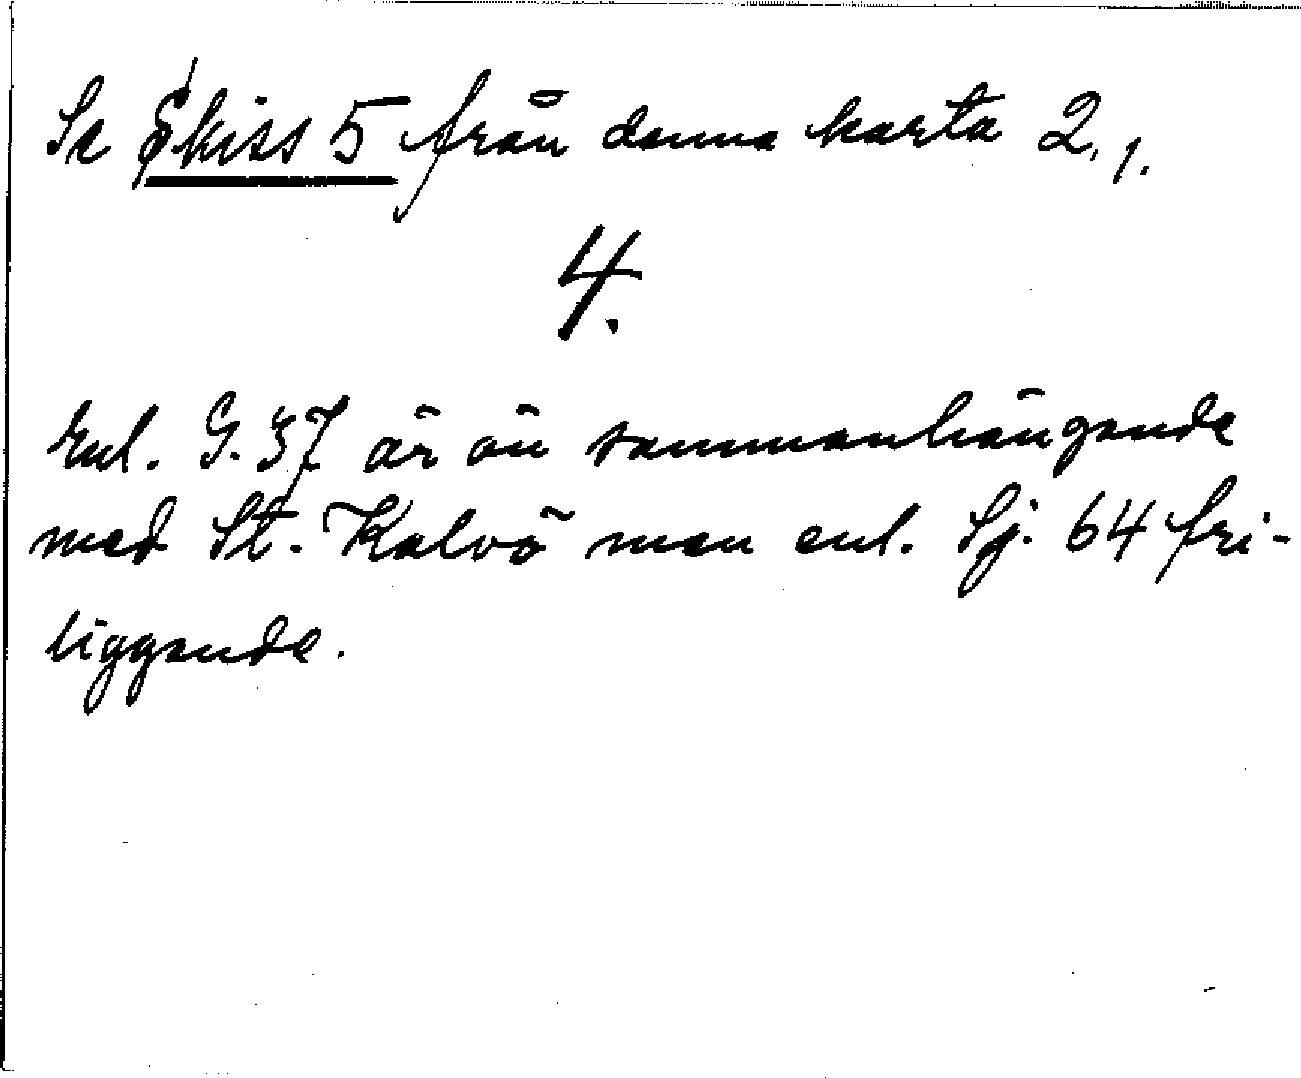 Se Skiss 5 från denna karta 2, 1.
4.
Enl. G. 37 är ön sammanhängande
med St. Kalvö men enl. Sj. 64 fri-
liggande.